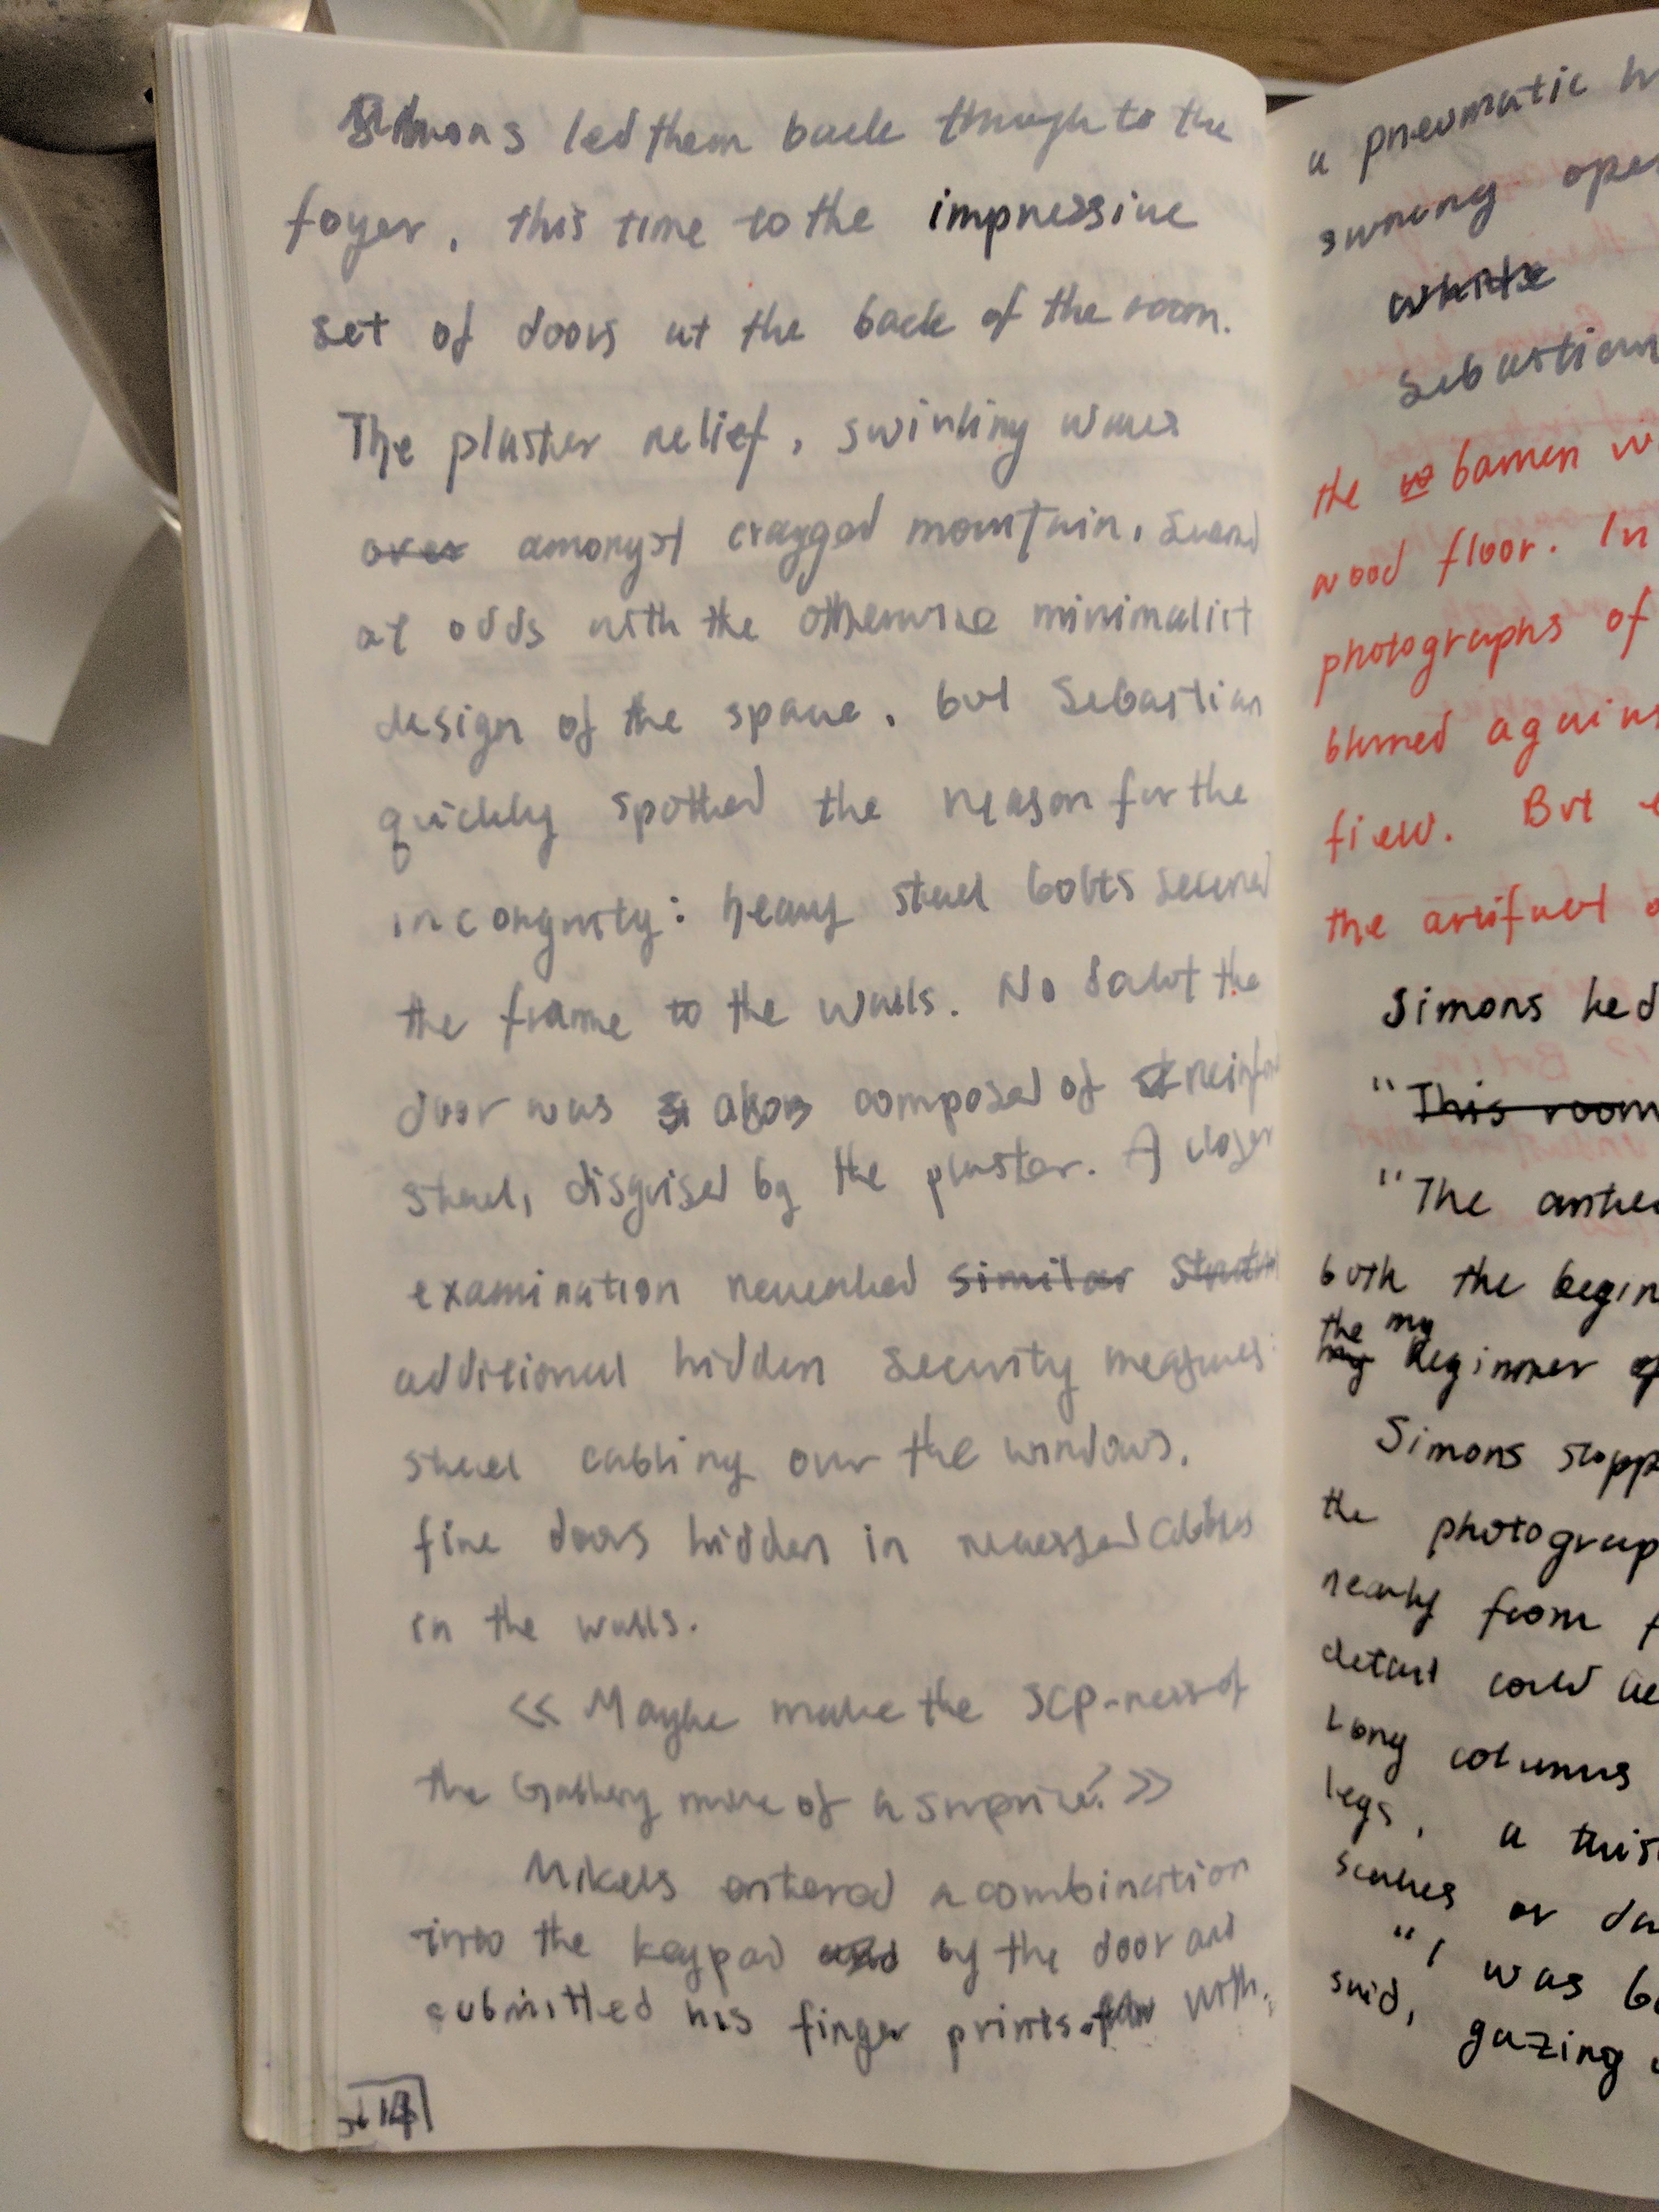 Simons led them back through to the
foyer, this time to the impressive
set of doors at the back of the room.
The plaster relief, swirling waves
over amongst cragged mountain, seemed
at odds with the otherwise minimalist
design of the space, but Sebastian
quickly spotted the reason for the
incongruity: heavy steel bolts secured
the frame to the walls. No doubt the
door was also composed of reinfo
steel, disguised by the plaster. A closer
examination revealed similar
additional hidden security measures:
steel cabling over the windows,
fire doors hidden in recessed
in the walls.
<< Maybe make the SCP-ness of
the Gallery more of a surprise? >>
Mikels entered a combination
into the keypad and by the door and
submitted his finger prints. With
14
a pneumatic
swung ope
white
Sebastian
the barren
wood floor. In
photographs of
blurred agains
view. But
the artifact
Simons led
"This room
"The
both the begin
the my
beginner of
Simons stopp
the photograp
nearly from
detail could
Long columns
legs, a
scales or
"I was
said, gazing